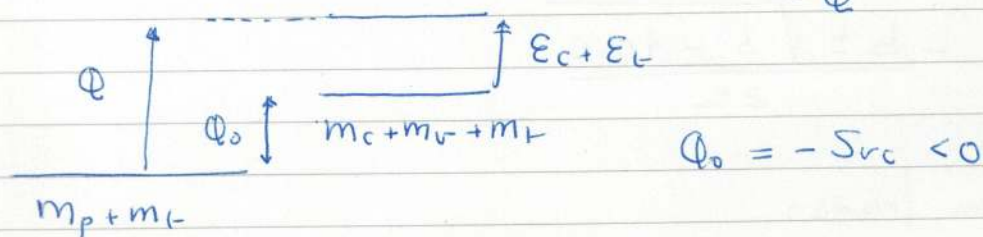 Q
ε_c + ε_t
Q_0
m_c + m_v + m_t
Q_0 = - S_vc < 0
m_p + m_t